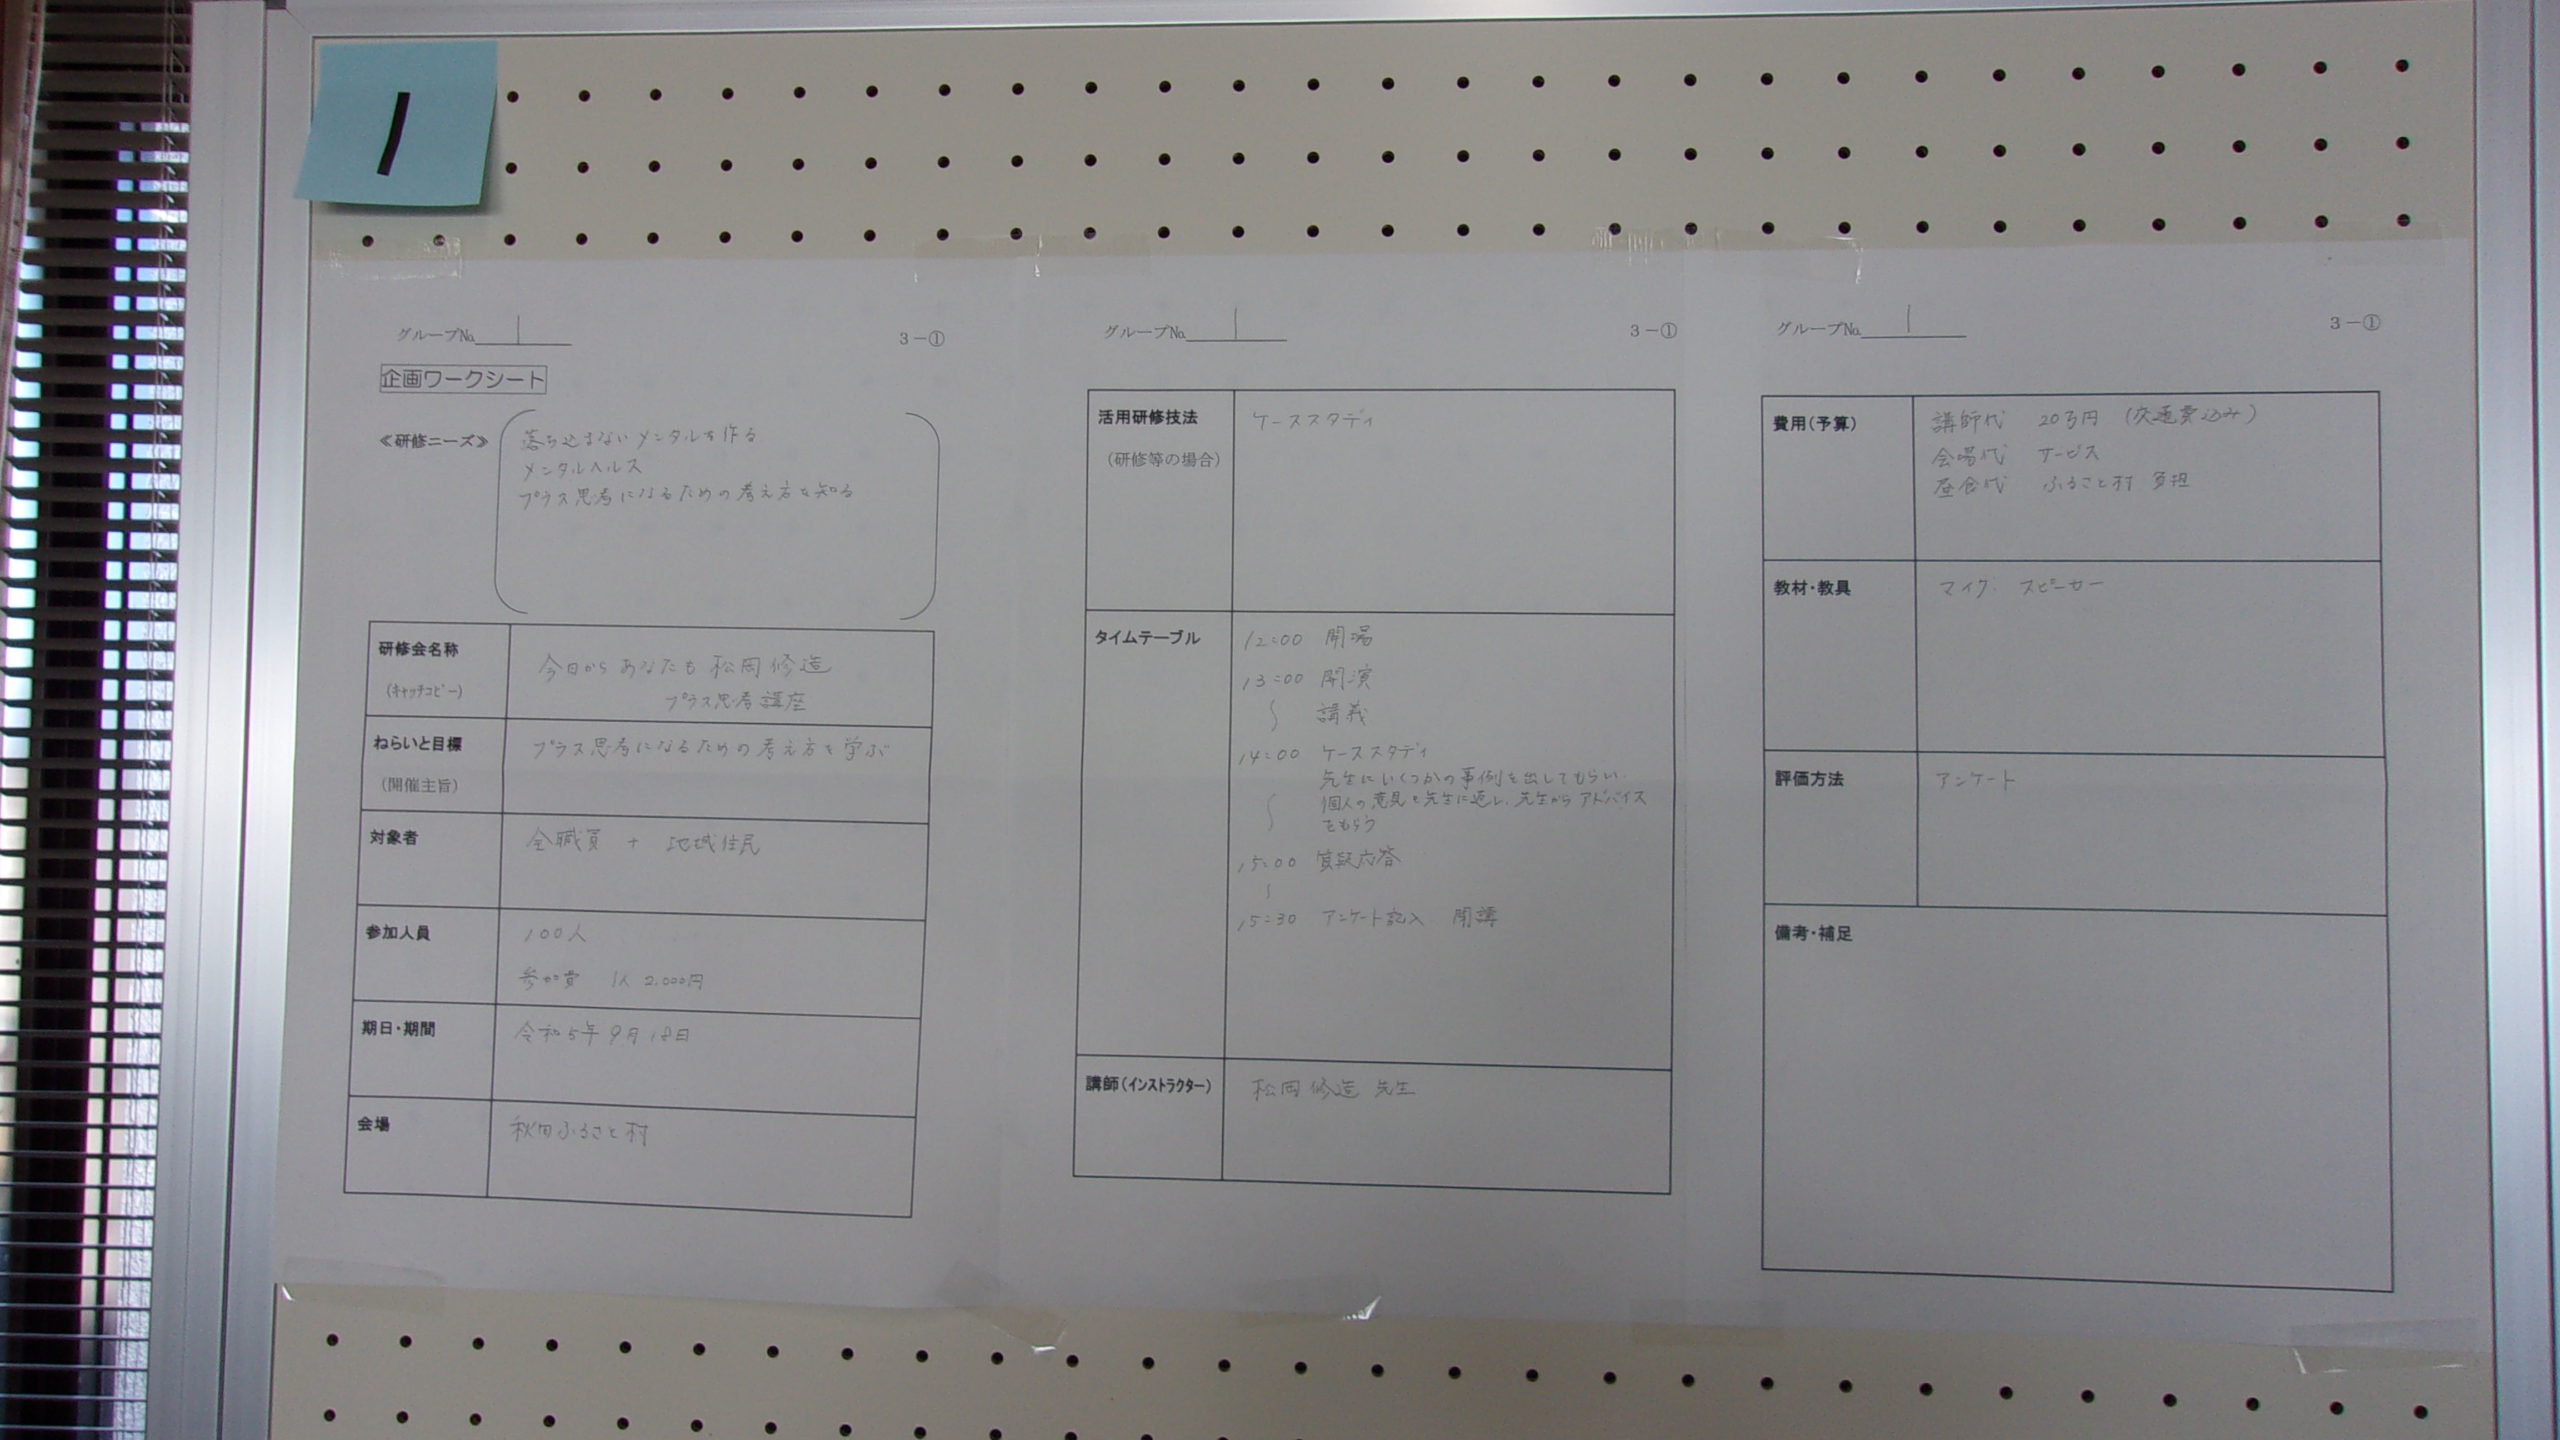 1
グループ№ 1
3－①
企画ワークシート
≪研修ニーズ≫
落ち込まないメンタルを作る
メンタルヘルス
プラス思考になるための考え方を知る
研修会名称
(ｷｬｯﾁｺﾋﾟｰ)
今日からあなたも松岡修造
プラス思考講座
ねらいと目標
（開催主旨）
プラス思考になるための考え方を学ぶ
対象者
全職員 + 地域住民
参加人員
100人
参加費 1人 2,000円
期日・期間
令和5年9月18日
会場
秋田ふるさと村
グループ№ 1
3－①
活用研修技法
（研修等の場合）
ケーススタディ
タイムテーブル
12:00 開場
13:00 開演
〜 講義
14:00 ケーススタディ
先生にいくつかの事例を出してもらい、
個人の意見を先生に返し、先生からアドバイス
をもらう
〜
15:00 質疑応答
〜
15:30 アンケート記入 閉講
講師（インストラクター）
松岡修造 先生
グループ№ 1
3－①
費用（予算）
講師代 20万円 (交通費込み)
会場代 サービス
昼食代 ふるさと村 負担
教材・教具
マイク. スピーカー
評価方法
アンケート
備考・補足